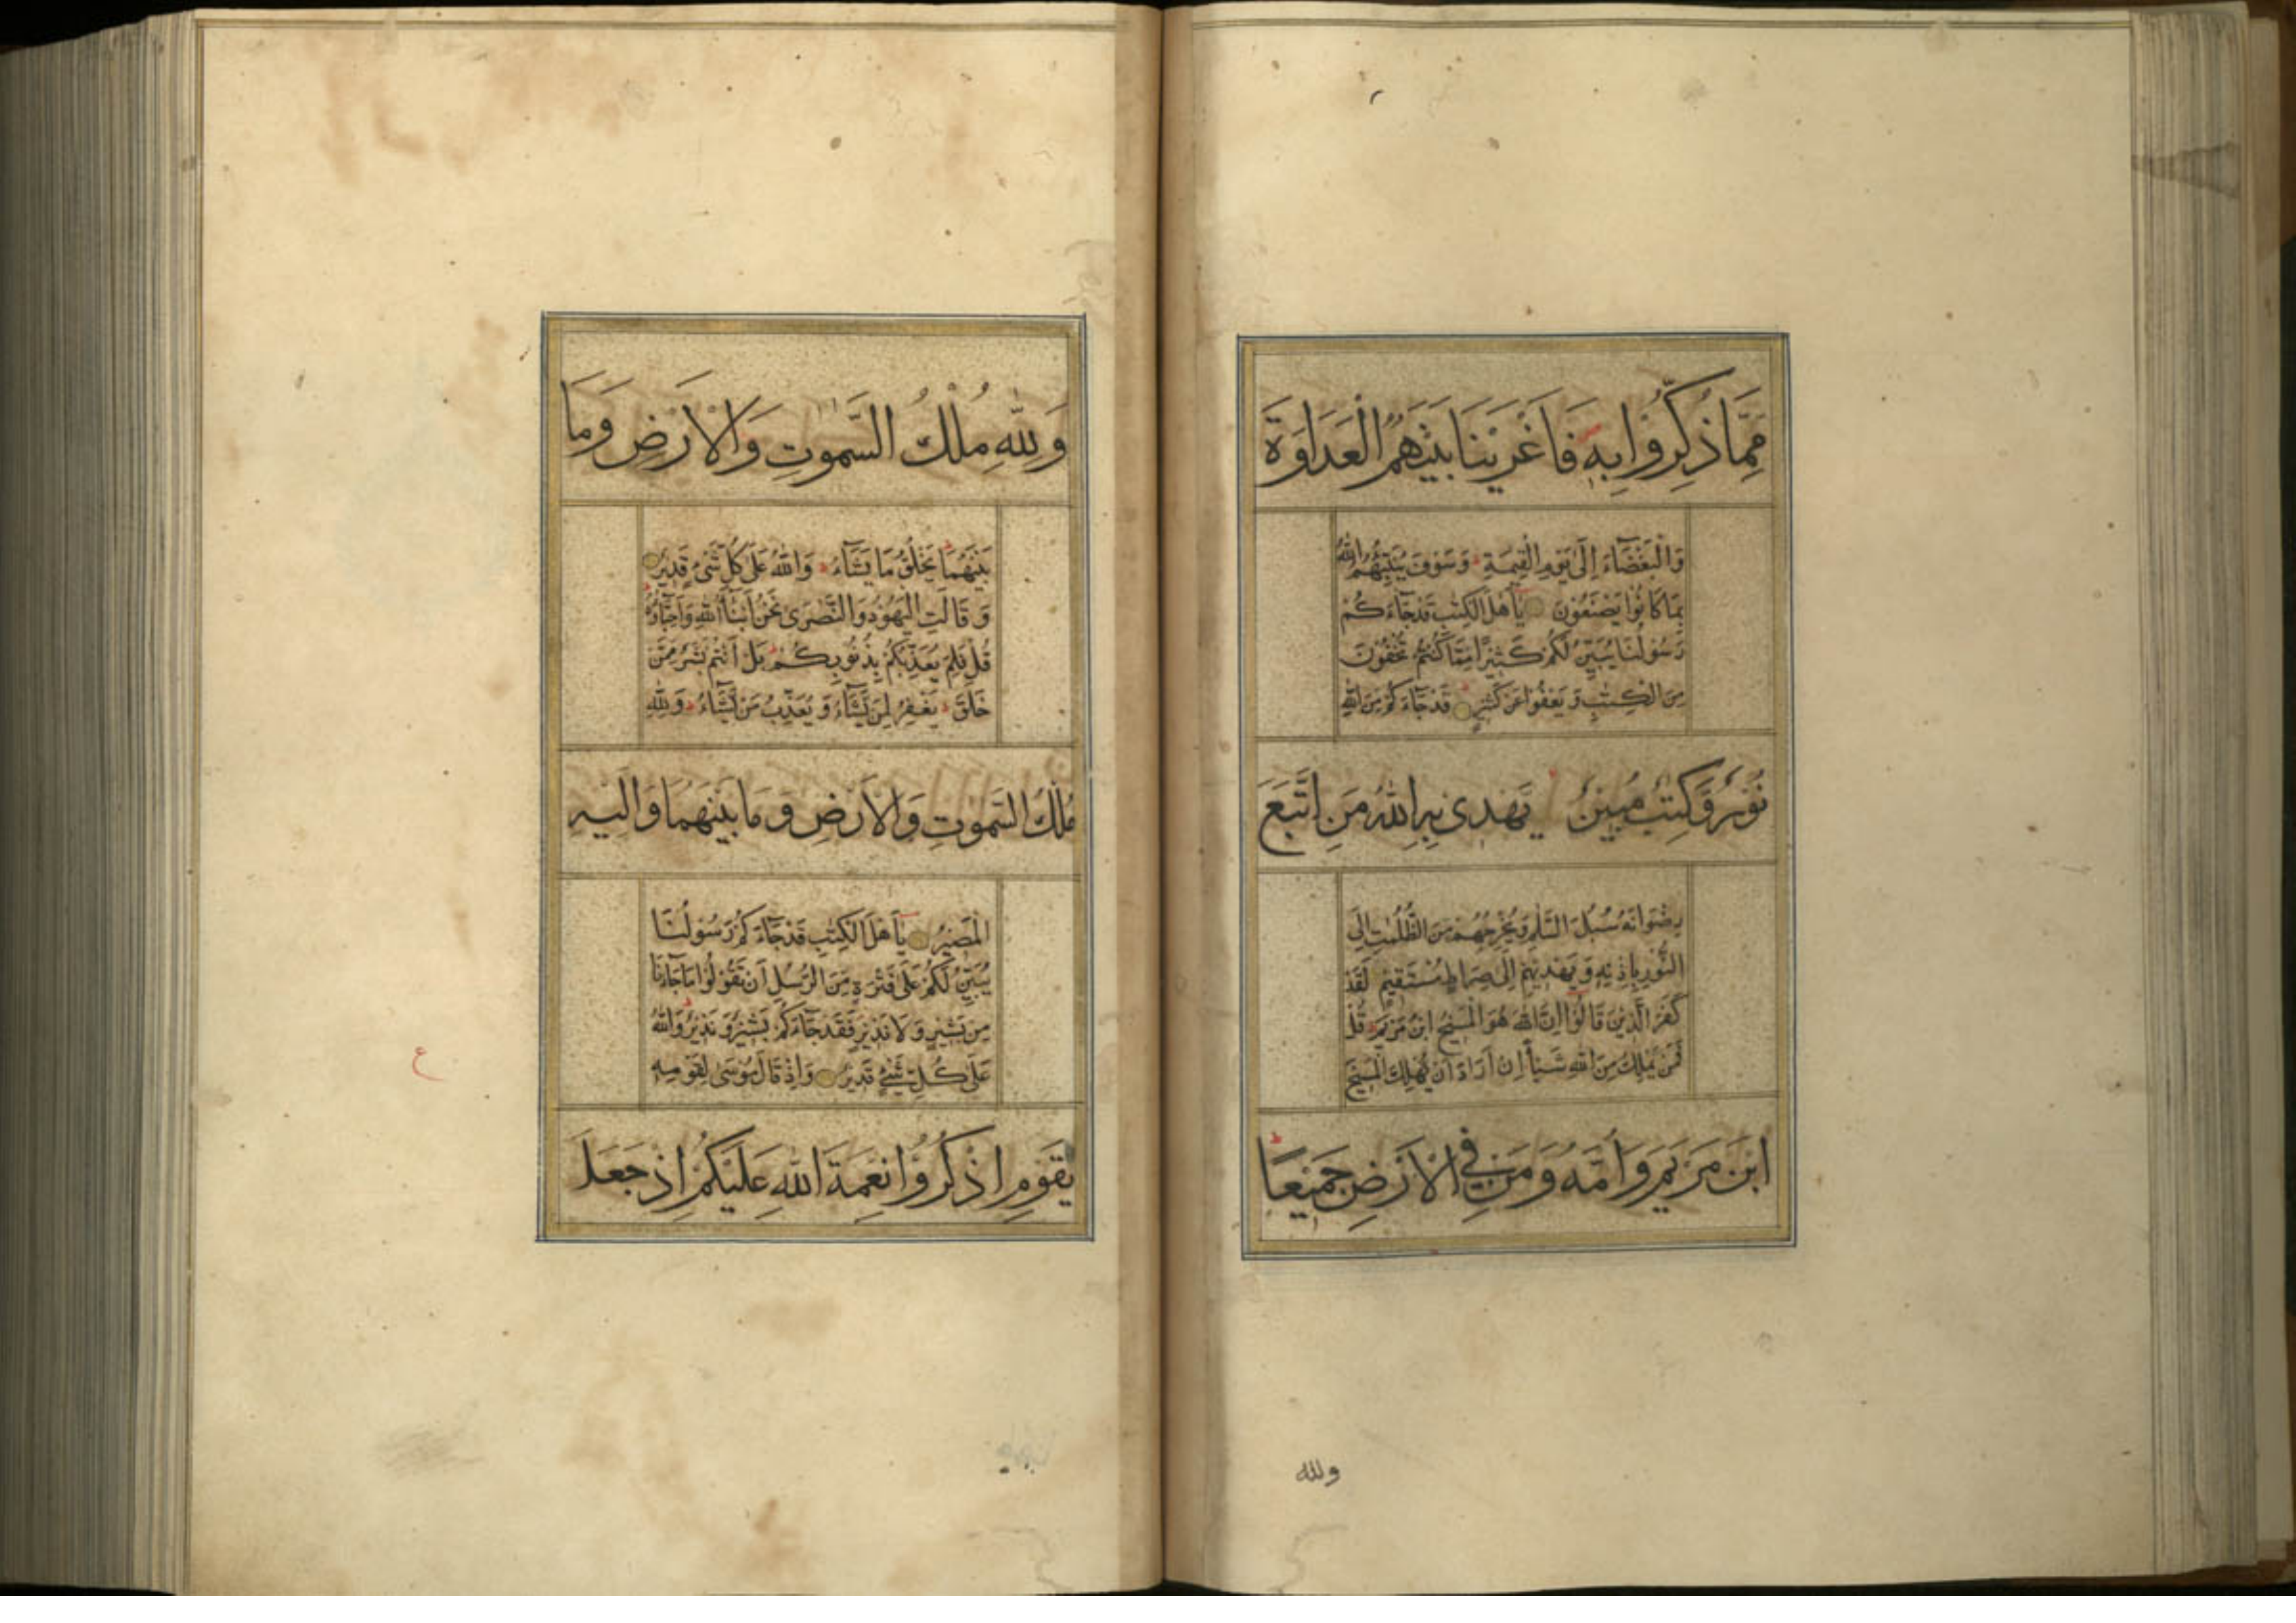 مِمَّا ذُكِّرُوا بِهِ فَاَغْرَيْنَا بَيْنَهُمُ الْعَدَاوَةَ
وَالْبَغْضَآءَ اِلٰى يَوْمِ الْقِيٰمَةِ وَسَوْفَ يُنَبِّئُهُمُ اللّٰهُ
بِمَا كَانُوا يَصْنَعُوْنَ يَآاَهْلَ الْكِتٰبِ قَدْ جَآءَكُمْ
رَسُوْلُنَا يُبَيِّنُ لَكُمْ كَثِيْرًا مِمَّا كُنْتُمْ تُخْفُوْنَ
مِنَ الْكِتٰبِ وَيَعْفُوْا عَنْ كَثِيْرٍ قَدْ جَآءَكُمْ مِنَ اللّٰهِ
نُوْرٌ وَّكِتٰبٌ مُبِيْنٌ يَهْدِى بِهِ اللّٰهُ مَنِ اتَّبَعَ
رِضْوَانَهُ سُبُلَ السَّلٰمِ وَيُخْرِجُهُمْ مِنَ الظُّلُمٰتِ اِلَى
النُّوْرِ بِاِذْنِهِ وَيَهْدِيْهِمْ اِلٰى صِرَاطٍ مُسْتَقِيْمٍ لَقَدْ
كَفَرَ الَّذِيْنَ قَالُوْا اِنَّ اللّٰهَ هُوَ الْمَسِيْحُ ابْنُ مَرْيَمَ قُلْ
فَمَنْ يَمْلِكُ مِنَ اللّٰهِ شَيْأً اِنْ اَرَادَ اَنْ يُهْلِكَ الْمَسِيْحَ
ابْنَ مَرْيَمَ وَاُمَّهُ وَمَنْ فِي الْاَرْضِ جَمِيْعًا
ولله
وَلِلّٰهِ مُلْكُ السَّمٰوٰتِ وَالْاَرْضِ وَمَا
بَيْنَهُمَا يَخْلُقُ مَا يَشَآءُ وَاللّٰهُ عَلٰى كُلِّ شَىْءٍ قَدِيْرٌ
وَقَالَتِ الْيَهُوْدُ وَالنَّصٰرٰى نَحْنُ اَبْنَآءُ اللّٰهِ وَاَحِبَّآؤُهُ
قُلْ فَلِمَ يُعَذِّبُكُمْ بِذُنُوْبِكُمْ بَلْ اَنْتُمْ بَشَرٌ مِمَّنْ
خَلَقَ يَغْفِرُ لِمَنْ يَّشَآءُ وَيُعَذِّبُ مَنْ يَّشَآءُ وَلِلّٰهِ
مُلْكُ السَّمٰوٰتِ وَالْاَرْضِ وَمَا بَيْنَهُمَا وَاِلَيْهِ
الْمَصِيْرُ يَآاَهْلَ الْكِتٰبِ قَدْ جَآءَكُمْ رَسُوْلُنَا
يُبَيِّنُ لَكُمْ عَلٰى فَتْرَةٍ مِنَ الرُّسُلِ اَنْ تَقُوْلُوْا مَا جَآءَنَا
مِنْ بَشِيْرٍ وَلَا نَذِيْرٍ فَقَدْ جَآءَكُمْ بَشِيْرٌ وَنَذِيْرٌ وَاللّٰهُ
عَلٰى كُلِّ شَىْءٍ قَدِيْرٌ وَاِذْ قَالَ مُوْسٰى لِقَوْمِهِ
يٰقَوْمِ اذْكُرُوْا نِعْمَةَ اللّٰهِ عَلَيْكُمْ اِذْ جَعَلَ
ع